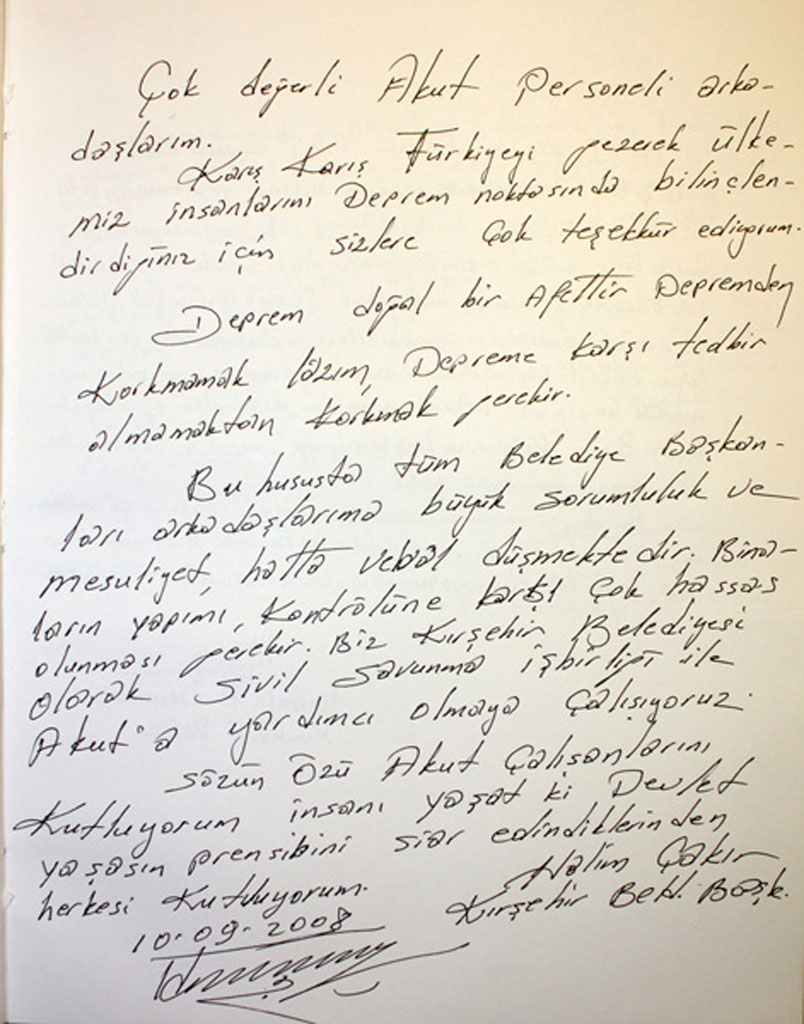 Çok değerli Akut Personeli arka-
daşlarım.
Karış Karış Türkiyeyi gezerek ülke-
miz insanlarını Deprem noktasında bilinçlen-
dirdiğiniz için sizlere Çok teşekkür ediyorum.
Deprem doğal bir Afettir Depremden
Korkmamak lâzım, Depreme karşı tedbir
almamaktan Korkmak gerekir.
Bu hususta tüm Belediye Başkan-
ları arkadaşlarıma büyük sorumluluk ve
mesuliyet, hatta vebal düşmektedir. Bina-
ların yapımı, Kontrolüne karşı Çok hassas
olunması gerekir. Biz Kırşehir Belediyesi
olarak Sivil Savunma işbirliği ile
Akut'a yardımcı olmaya Çalışıyoruz.
Sözün Özü Akut Çalışanlarını
Kutluyorum insanı yaşat ki Devlet
yaşasın prensibini siar edindiklerinden
herkesi Kutluyorum. Halim Çakır
10-09-2008 Kırşehir Beld. Başk.